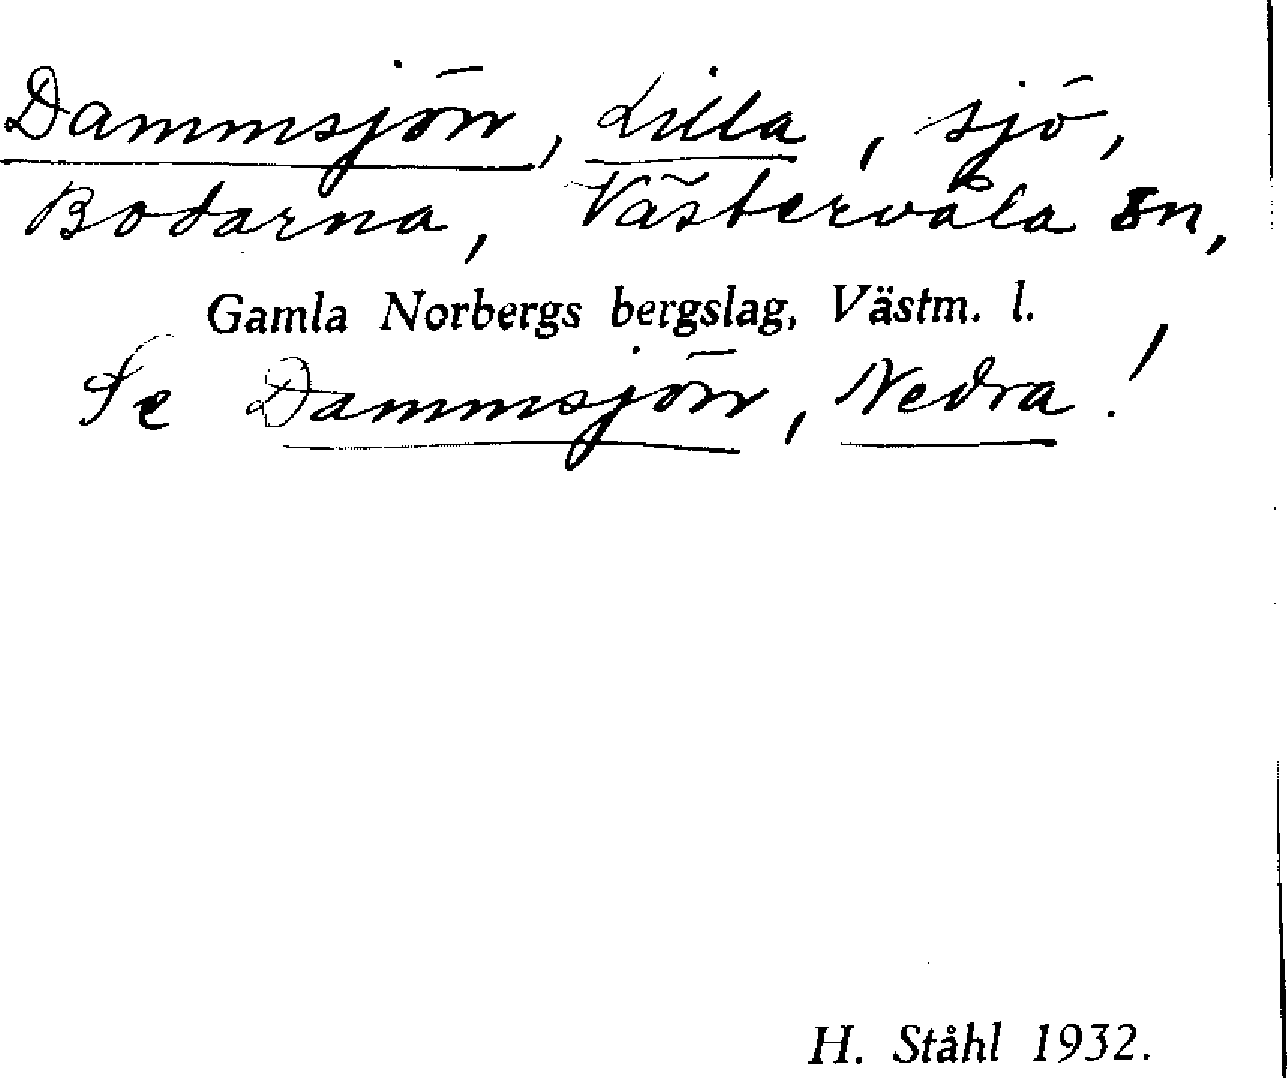 Dammsjön, Lilla, sjö,
Bodarna, Västervåla sn,
Gamla Norbergs bergslag, Västm. l.
Se Dammsjön, Nedra!
H. Ståhl 1932.